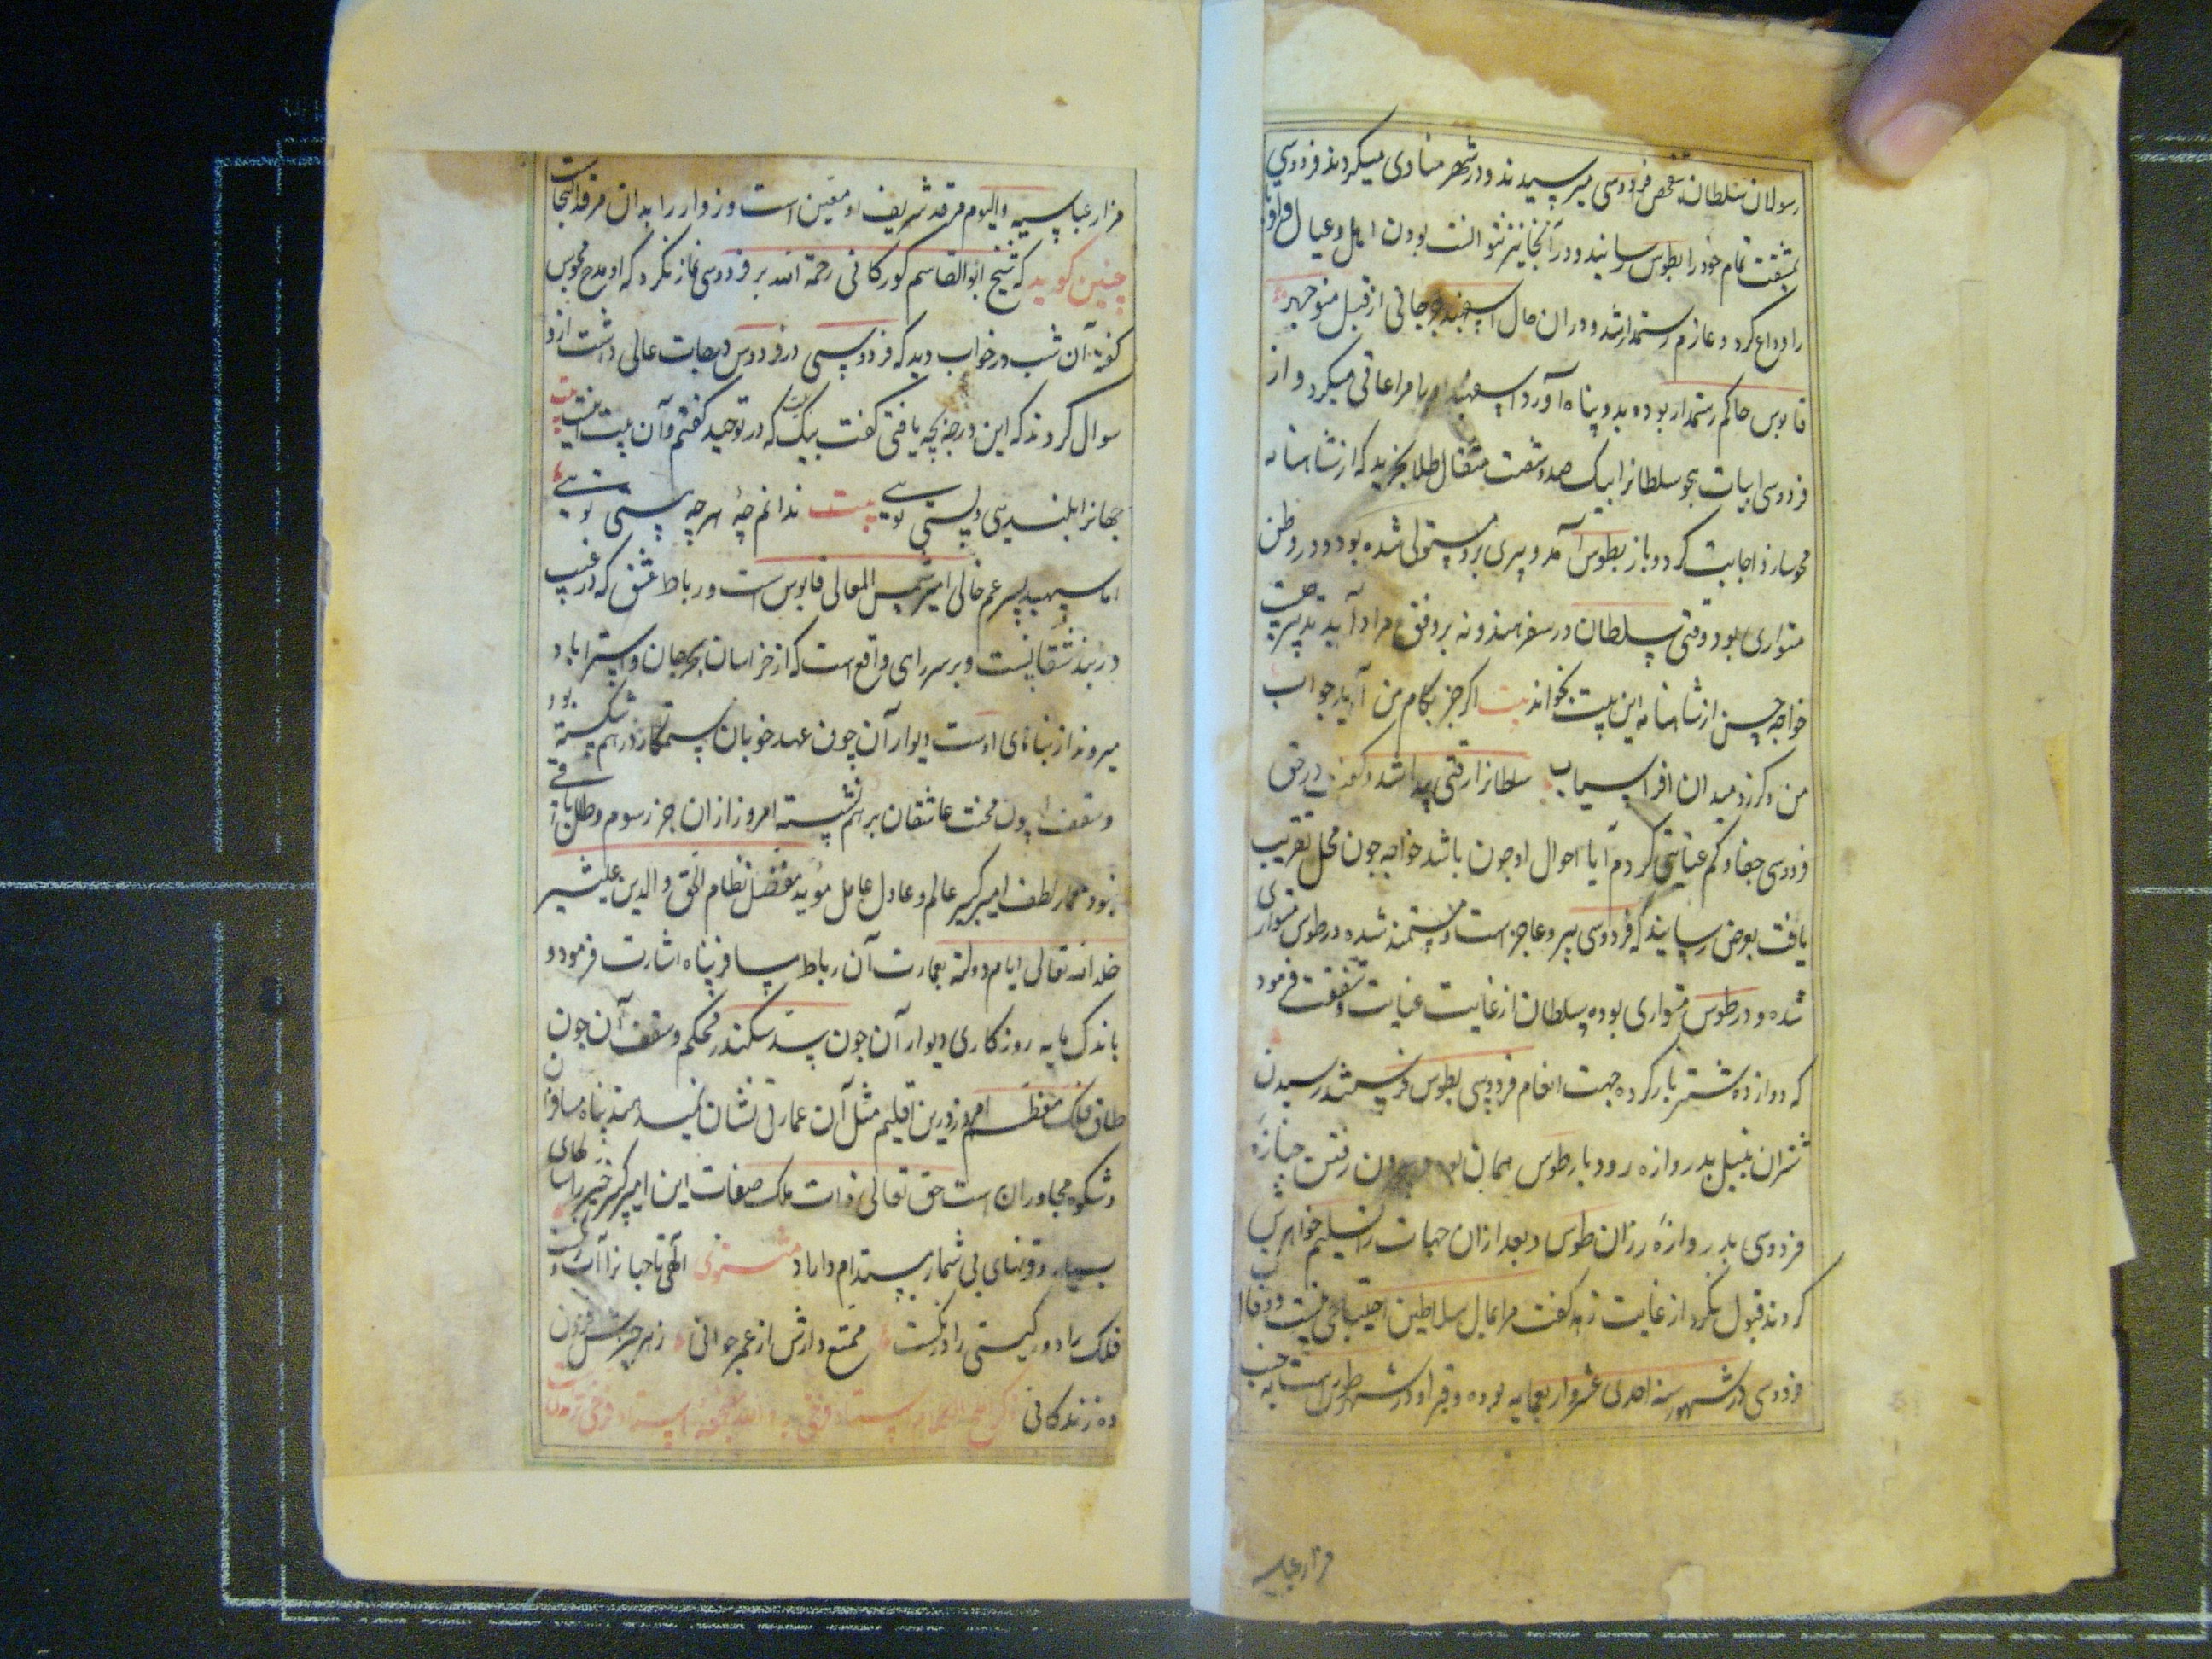 رسولان سلطان تفحص فردوسی میرسیدند و در شهر منادی میکردند فردوسی
بمشقت تمام خود را بطوس رسانید و در آنجا نیز نتوانست بودن اهل و عیال و اقربا
را وداع کرد و عازم رستمدار شد و دران حال اسپهبد جرجانی از قبل منوچهر
قابوس حاکم رستمدار بوده بدو پناه آورد اسپهبد او را مراعاتی میکرد و از
فردوسی ابیات هجو سلطانرا بیک صد و شصت مثقال طلا بخرید که از شاهنامه
محو سازد اجابت کرد و باز بطوس آمد و پیری برو مستولی شده بود و در وطن
متواری بود وقتی سلطان در سفر هند نه بر وفق مراد آید تدبیر چیست
خواجه حسن از شاهنامه این بیت بخواند بیت اکر جز بکام من آید جواب
من و کرز و میدان افراسیاب سلطانرا رقتی پیدا شد و کفت در حق
فردوسی جفا و کم عنایتی کردم آیا احوال او چون باشد خواجه چون محل تقریب
یافت بعرض رسانید که فردوسی پیر و عاجز است و مستمند شده در طوس متواری
شده و در طوس متواری بوده سلطان از غایت عنایت و شفقت فرمود
که دوازده شتر بار کرده جهت انعام فردوسی بطوس فرستند رسیدن
شتران بنیل بدروازه رودبار طوس همان بود و بیرون رفتن جنازه
فردوسی بدروازهٔ رزان طوس و بعد ازان جهات را تسلیم خواهرش
کردند قبول نکرد از غایت زهد کفت مرا بمال سلاطین احتیاجی نیست و وفات
فردوسی در شهور سنه احدی عشر و اربعمایه بوده و قبر او در شهر طوس است بجنب
مزار عباسیه
مزار عباسیه و الیوم مرقد شریف او معین است و زوار را بدان مرقد التجاست
چنین کویند که شیخ ابوالقاسم کورکانی رحمة الله بر فردوسی نماز نکرد که او مدح مجوس
کفته آن شب در خواب دید که فردوسی در فردوس درجات عالی داشت ازو
سوال کردند که این درجه بچه یافتی کفت بیک بیت که در توحید کفتم و آن بیت اینست بیت
جهانرا بلندی و پستی تویی بیت ندانم چهٔ هر چه هستی تویی
اما سپهبد پسر عم خالی امیر شمس المعالی قابوس است و رباط عشق که در غیب
دربند شقانست و بر سر راهی واقعست که از خراسان بجرجان و استراباد
میروند از بناهای اوست دیوار آن چون عهد خوبان ستمکار درهم شکسته بود
و سقف او چون محنت عاشقان برهم نشسته امروز ازان جز رسوم و طلل باقی
نبود معمار لطف امیر کبیر عالم و عادل عامل موید مفضل نظام الحق و الدین علیشیر
خلد الله تعالی ایام دولته بعمارت آن رباط مسافر پناه اشارت فرمود و
باندک مایه روزکاری دیوار آن چون سد سکندر محکم و سقف آن چون
طاق فلک معظم امروز درین اقلیم مثل آن عمارتی نشان نمیدهند پناه مسافران
و شکوه مجاوران است حق تعالی ذات ملک صفات این امیر کبیر خیر را سالهای
بسیار و قرنهای بی شمار مستدام داراد مثنوی الهی تا جهانرا آب و رنکست
فلک را دور کیتی را درنکست ممتع دارش از عمر جوانی ز هر چیزش فزون
ده زندکانی